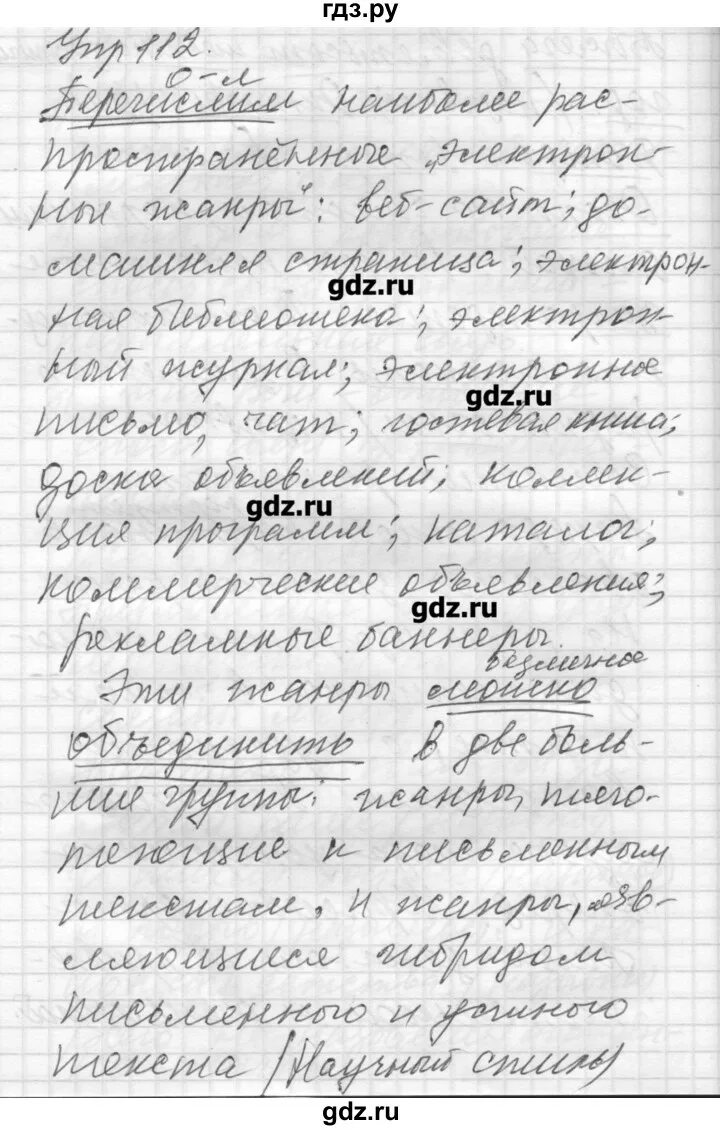 гдз.ру
Упр 112.
о-л
Перечислим наиболее рас-
пространённые "электрон-
ные жанры": веб-сайт; до-
машняя страница; электрон-
gdz.ru
ная библиотека; электрон-
ный журнал; электронное
gdz.ru
письмо, чат; гостевая книга;
доска объявлений; коллек-
gdz.ru
ция программ; каталог;
коммерческие объявления;
gdz.ru
рекламные баннеры.
безличное
Эти жанры можно
объединить в две боль-
шие группы: жанры, тяго-
теющие к письменным
текстам, и жанры, явв-
ляющиеся гибридом
письменного и устного
текста (Научный стиль)
gdz.ru